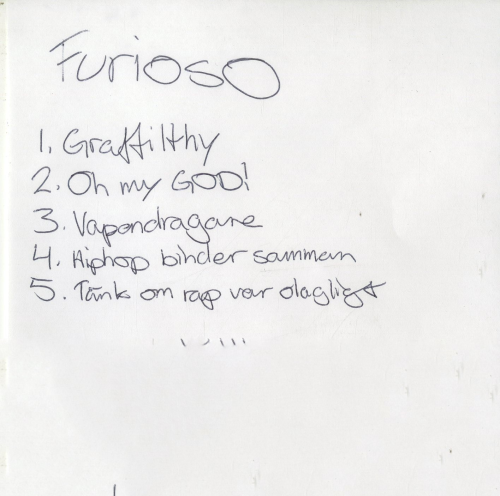 Furioso
1. Graffilthy
2. Oh my GOD!
3. Vapendragare
4. Hiphop binder samman
5. Tänk om rap var olagligt